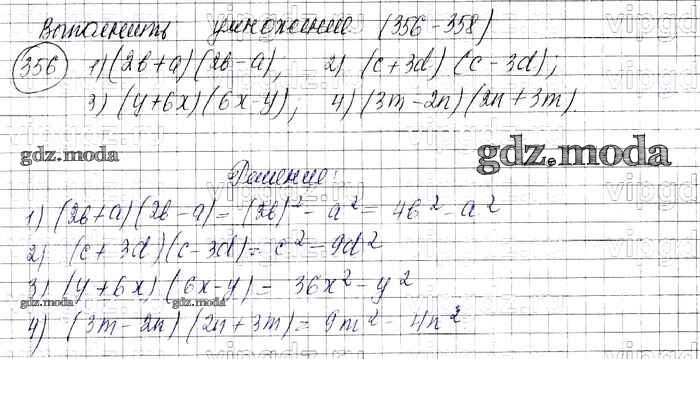 Выполнить умножение (356-358)
356 1) (2b+a)(2b-a); 2) (c+3d)(c-3d);
3) (y+6x)(6x-y); 4) (3m-2n)(2n+3m).
gdz.moda
gdz.moda
Решение:
1) (2b+a)(2b-a)=(2b)²-a²=4b²-a²
2) (c+3d)(c-3d)=c²-9d²
3) (y+6x)(6x-y)=36x²-y²
gdz.moda gdz.moda
4) (3m-2n)(2n+3m)=9m²-4n²